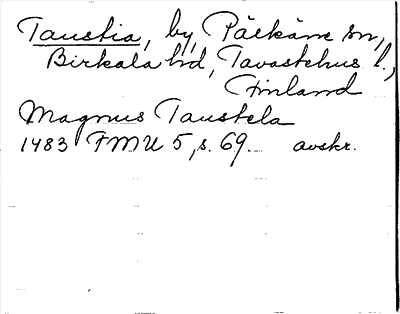 Taustia, by, Pälkäne sn,
Birkala hd, Tavastehus l.,
Finland
Magnus Taustela
1483 FMU 5, s. 69. avskr.